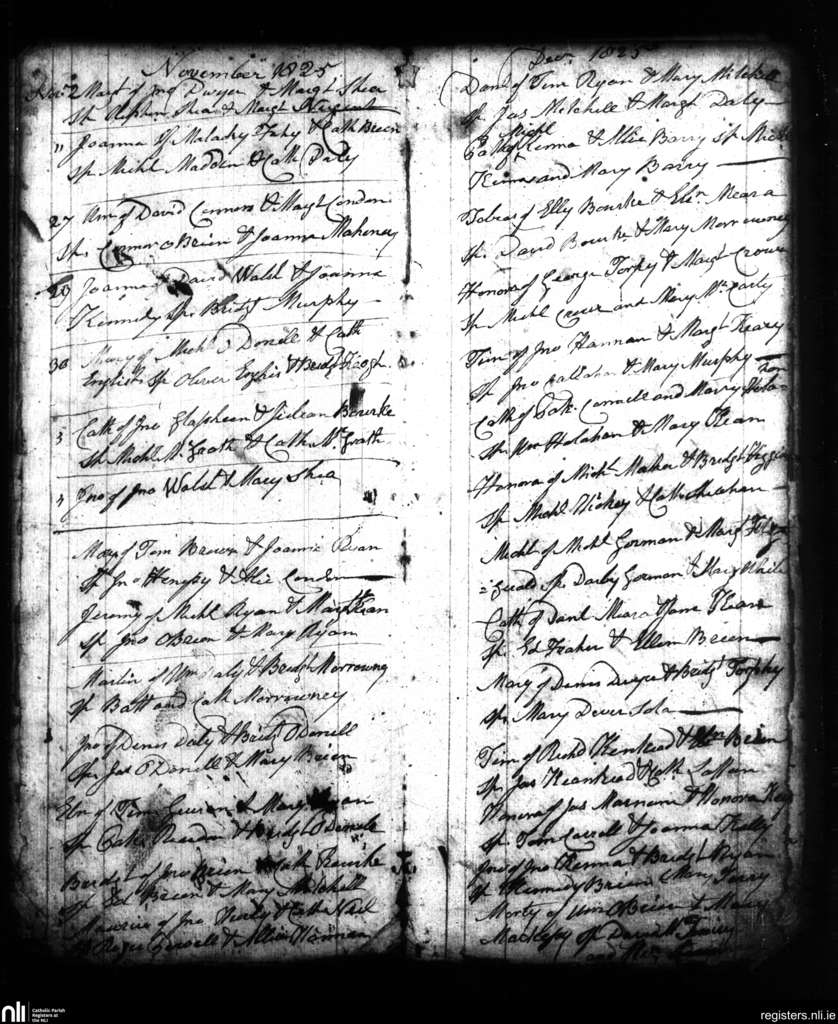 November 1825
Novr 2 Margt of Jno Dwyer & Margt Shea
Sp Stephen Shea & Margt Nugent
" Joanna of Malachy Fahy & Cath Breen
Sp Michl Madden & Cath Daly
27 Wm of David Connors & Margt Condon
Sp. Connor O Brien & Joanna Mahoney
29 Joanna David Walsh & Joanna
Kennedy Sp. Bridgt Murphy
30 Mary of Michl O Donell & Cath
English Sp Oliver & Bridgt Keogh
3 Cath of Jno Glasheen & Bourke
Sp Michl McGrath & Cath McGrath
4 Jno of Jno Walsh & Mary Shea
Mary of Tom Brown & Joanna Ryan
Sp Jno Hennessy & Alice Condon
Jeremy of Michl Ryan & Margt Kean
Sp Jno OBrien & Mary Ryan
Martin of Wm Daly & Bridgt Morrowney
Sp Batt and Cath Morrowney
Jno of Denis Daly & Bridgt ODonell
Sp. Jas ODonell & Mary Brien
Elen of Tim & Mary
Sp Patk & Bridgt ODonele
Bridgt of Jno Brien & Cath Rourke
Sp Ed Breen & Mary Mitchell
Maurice of Jno & Cath Neil
Sp Roger & Allice Hannan
Decr 1825
Danl of Tim Ryan & Mary Mitchell
Sp Jas Mitchell & Margt Daly
Michl
Patk of Kenna & Allice Barry Sp Michl
Kenna and Mary Barry
Tobias of Elly Bourke & Elen Meara
Sp. David Bourke & Mary Morrowney
Honora of George Torpy & Margt Crowe
Sp Michl Crowe and Mary McCarty
Tim of Jno Hannan & Margt Keary
Sp Jno Callahan & Mary Murphy
Cath of Patk Connell and Mary Hola-
han
Sp Wm Holahan & Mary OKean
Honora of Michl Maher & Bridgt Higgins
Sp Michl Hickey & Cath Meehan
Michl of Michl Gorman & Margt
Sp. Darby Gorman & Mary White
Cath of Danl Meara & Jane OKeane
Sp Ed Fraher & Ellen Breen
Mary of Denis Dwyer & Bridgt Torphy
Sp. Mary Dever Sola
Tim of Richd & Elen Brien
Sp Jas & Cath Lallan
Honora of Jas & Honora
Sp Tom Carroll & Joanna Kelly
Jno of Jno Kenna & Bridgt Ryan
Sp Kennedy Brien Mary Terry
Morty of Wm OBrien & Mary
Mackesy Sp David
and
nli
Catholic Parish
Registers at
the NLI
registers.nli.ie